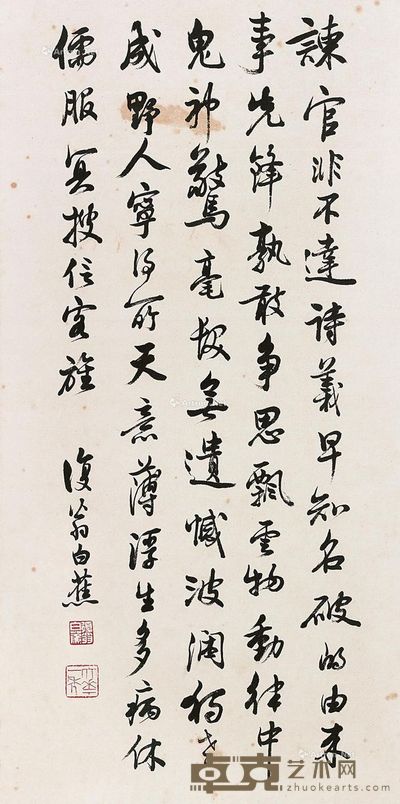 諫官非不達詩義早知名破的由来
事先鋒孰敢争思飄雲物動律中
鬼神驚毫髮無遺憾波瀾獨老
成野人寧得所天意薄浮生多病休
儒服冥搜信客旌
復翁白蕉
卓克艺术网
zhuokearts.com